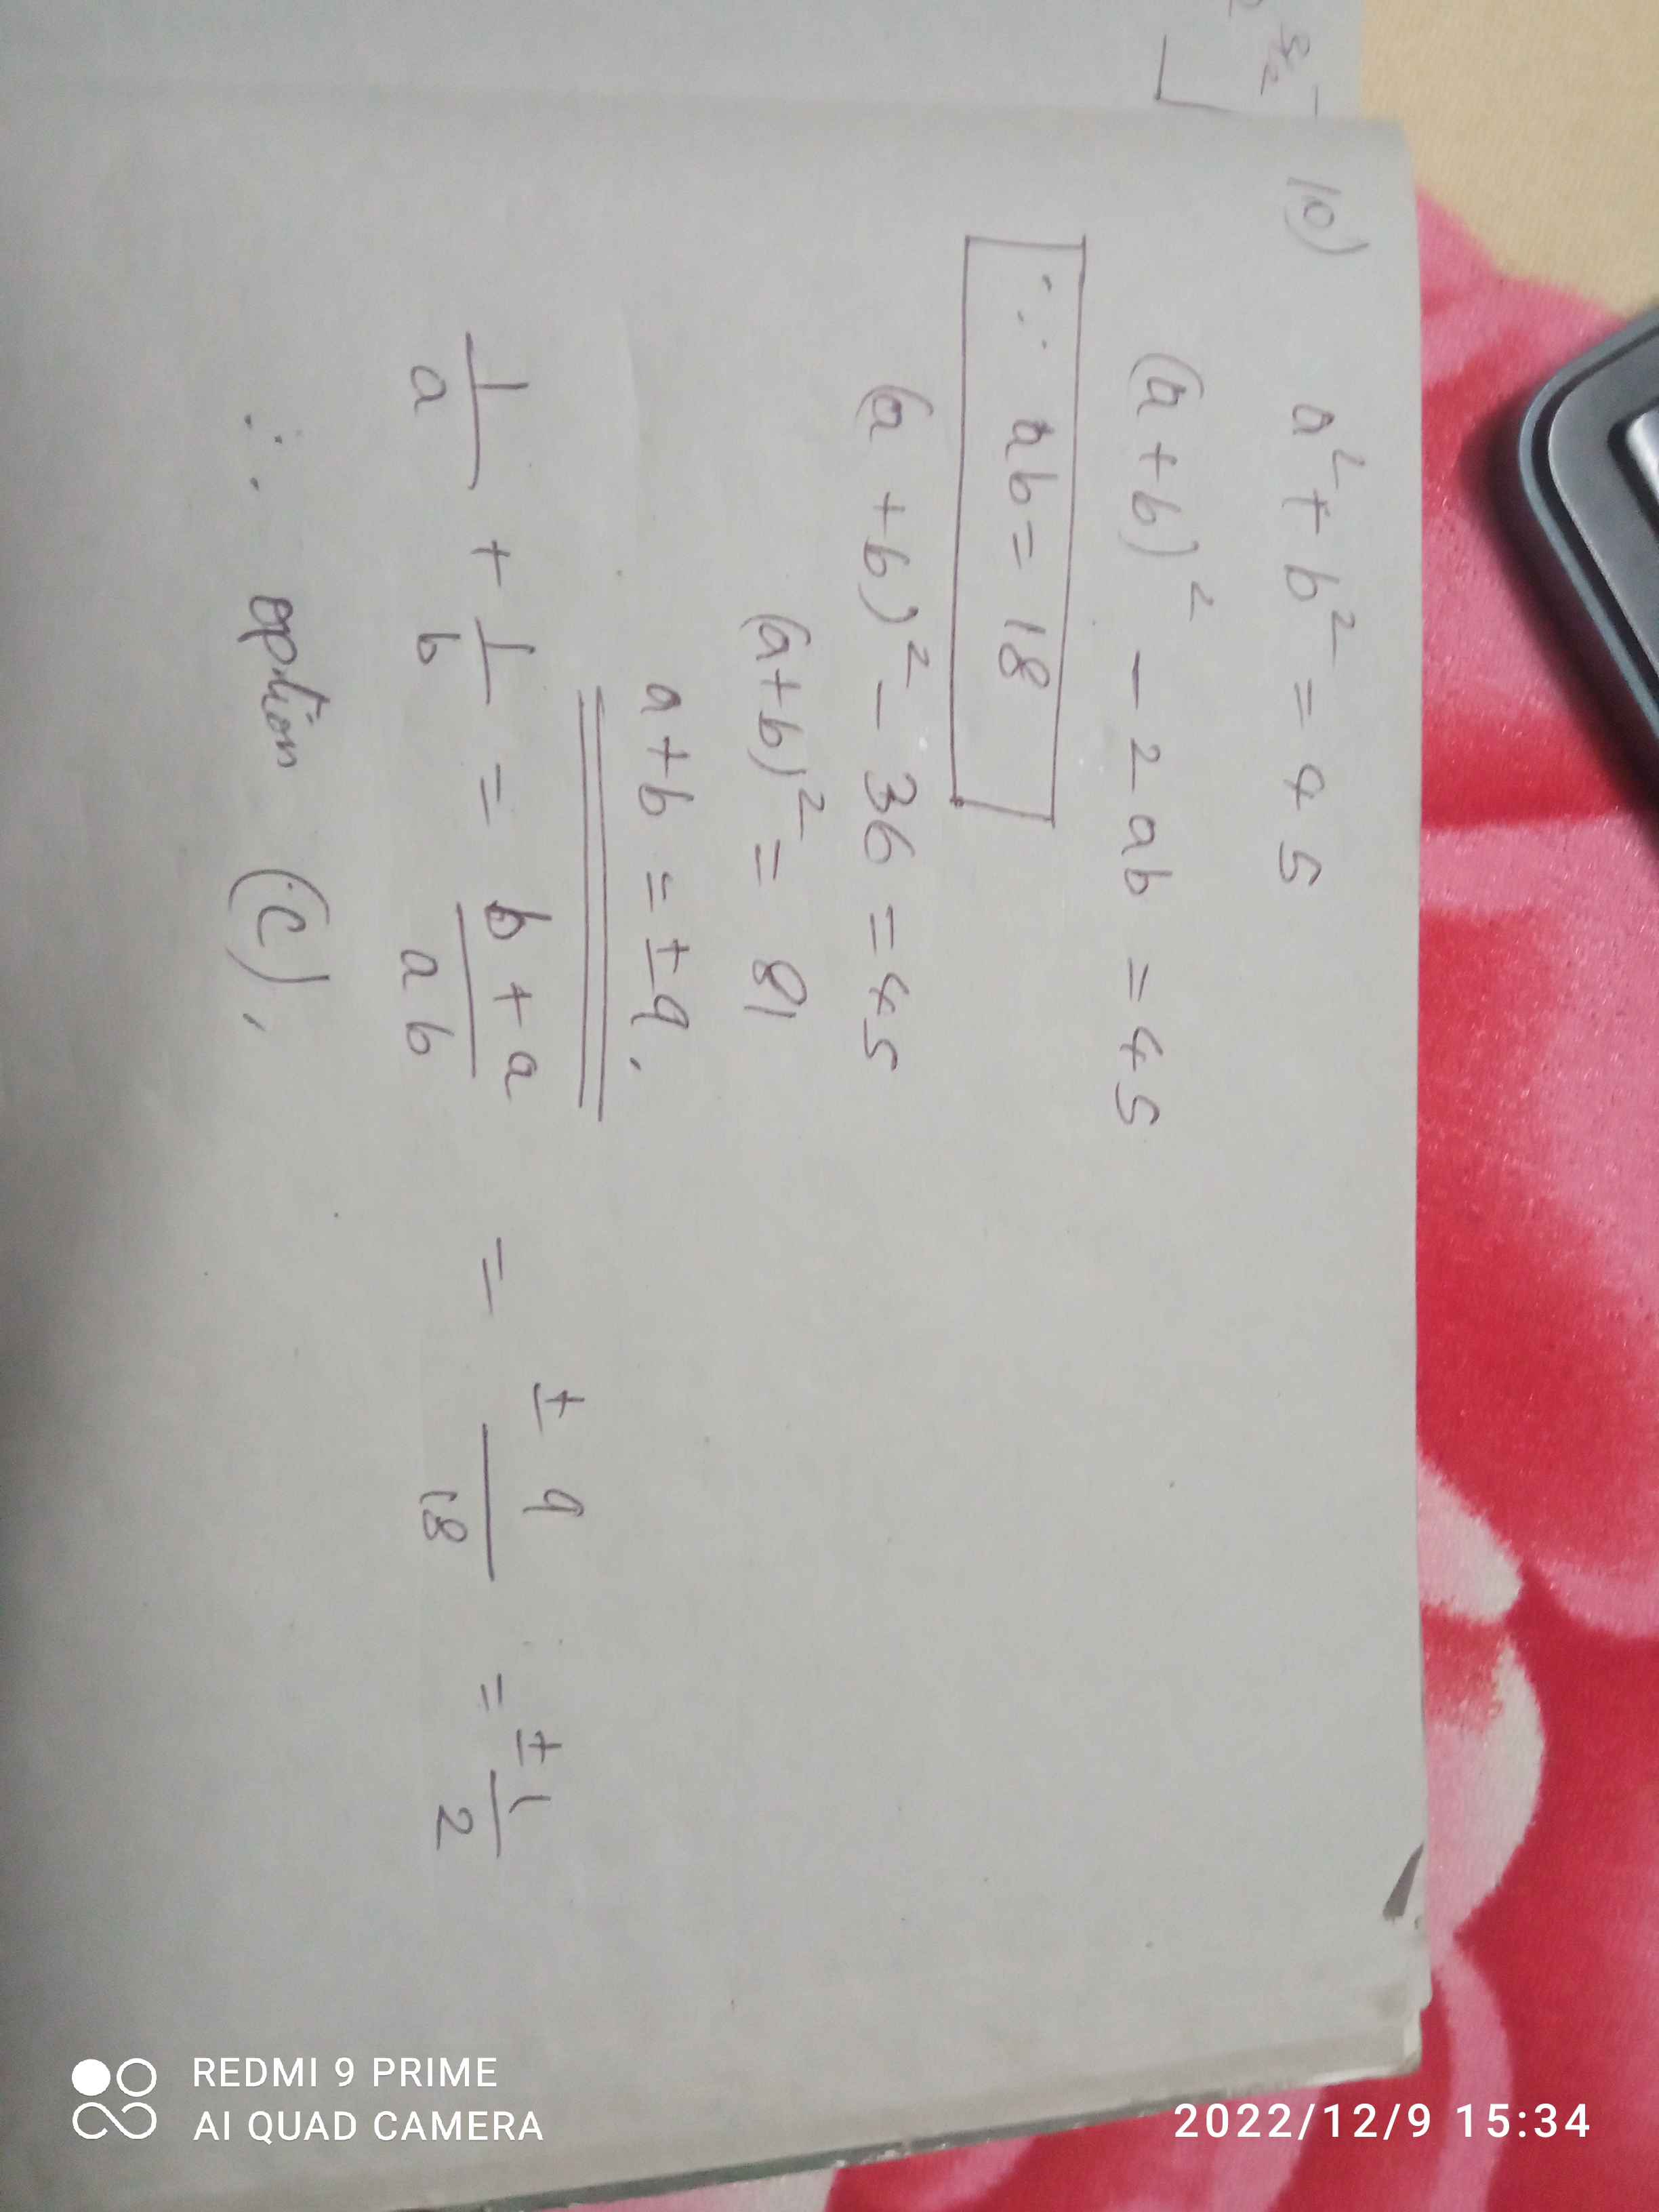 10) a² + b² = 45
(a+b)² - 2ab = 45
∵ ab = 18
(a + b)² - 36 = 45
(a+b)² = 81
a+b = ±9,
1/a + 1/b = b+a/ab = ±9/18 = ±1/2
∴ option (c),
REDMI 9 PRIME
AI QUAD CAMERA
2022/12/9 15:34